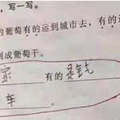 ，写一写。
的葡萄有的运到城市去，有的运到
到成葡萄干。
家 有的
车